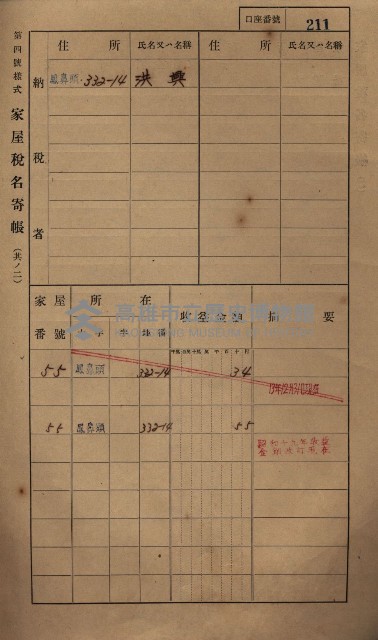 口座番號 211
第四號樣式 家屋稅名寄帳 (其ノ二)
納稅者
住所 氏名又ハ名稱 住所 氏名又ハ名稱
鳳鼻頭 332-14 洪興
家屋番號 所在 收益金額 摘要
高雄市立歷史博物館
KAOHSIUNG MUSEUM OF HISTORY
大字 地番
55 鳳鼻頭 332-14 34
55 鳳鼻頭 332-14 55
昭和十九年